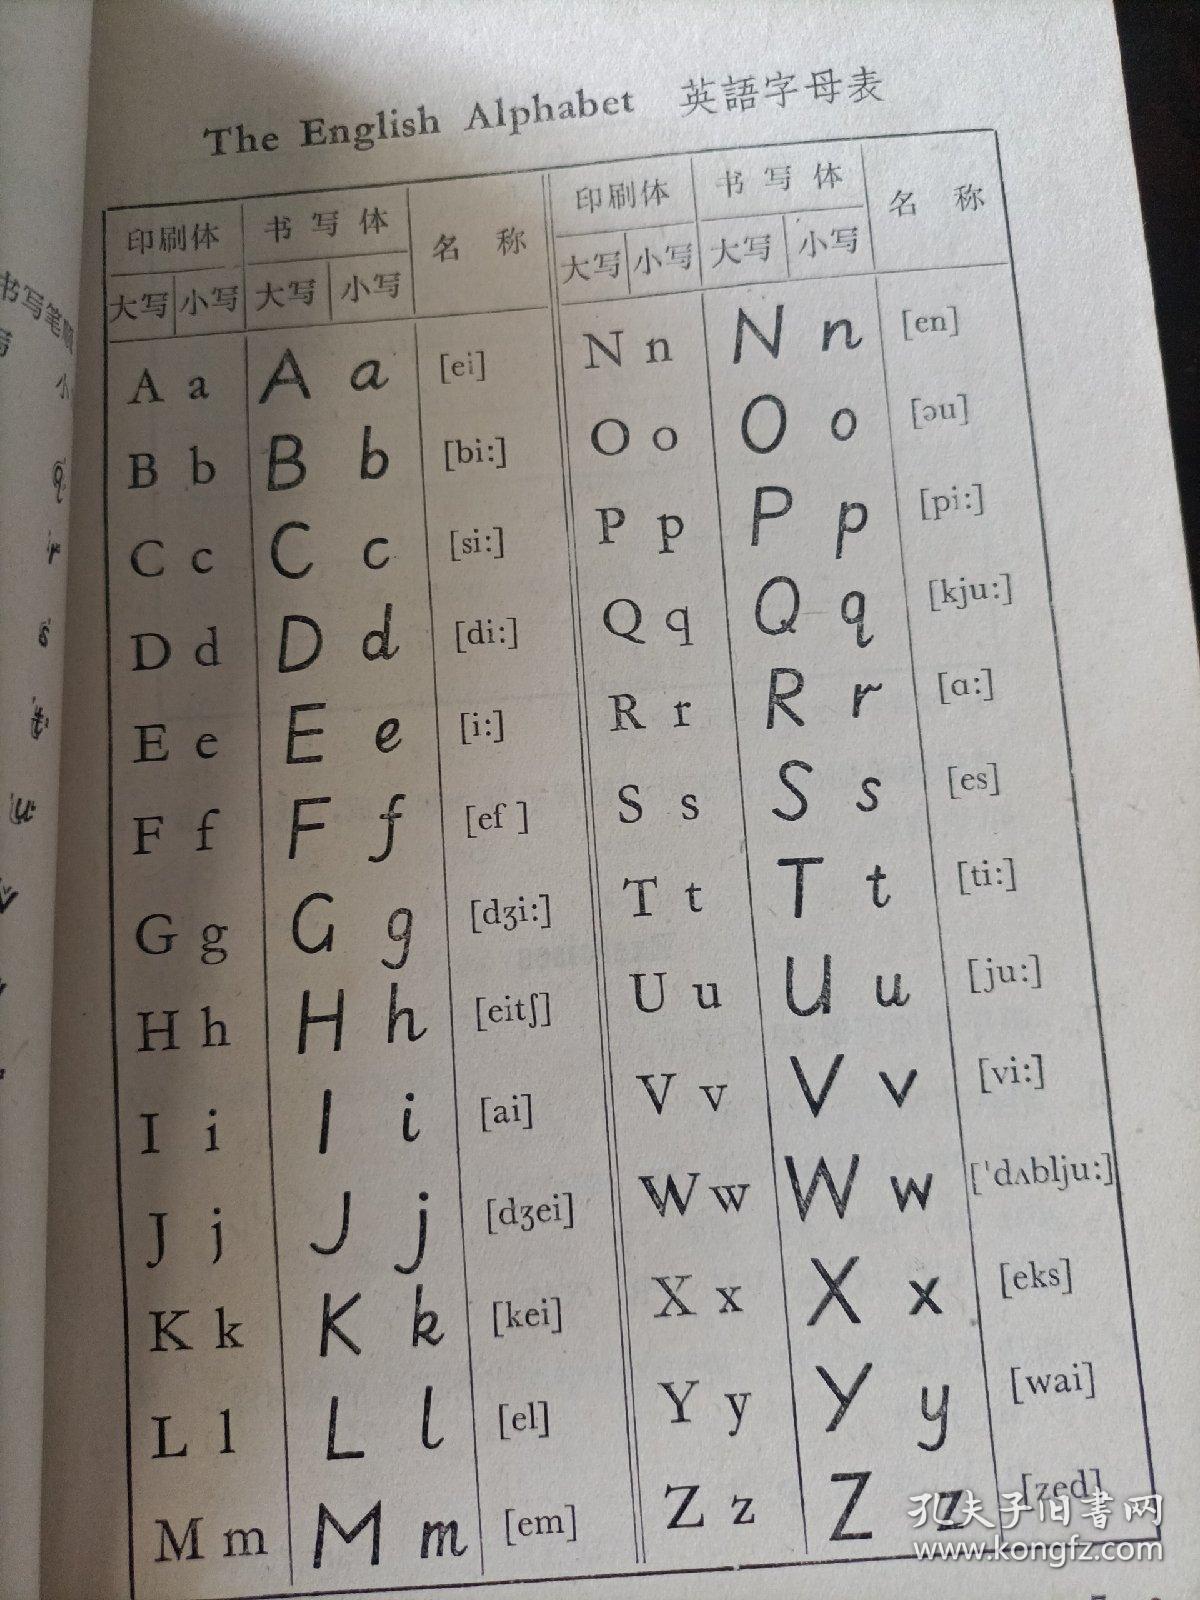 The English Alphabet 英語字母表
印刷体 书写体 名称 印刷体 书写体 名称
大写 小写 大写 小写 大写 小写 大写 小写
A a A a [ei] N n N n [en]
B b B b [bi:] O o O o [əu]
C c C c [si:] P p P p [pi:]
D d D d [di:] Q q Q q [kju:]
E e E e [i:] R r R r [ɑ:]
F f F f [ef] S s S s [es]
G g G g [dʒi:] T t T t [ti:]
H h H h [eitʃ] U u U u [ju:]
I i I i [ai] V v V v [vi:]
J j J j [dʒei] W w W w ['dʌblju:]
K k K k [kei] X x X x [eks]
L l L l [el] Y y Y y [wai]
M m M m [em] Z z Z z [zed]
书写笔顺
写 小
q
r
s
t
u
v
孔夫子旧書网
www.kongfz.com